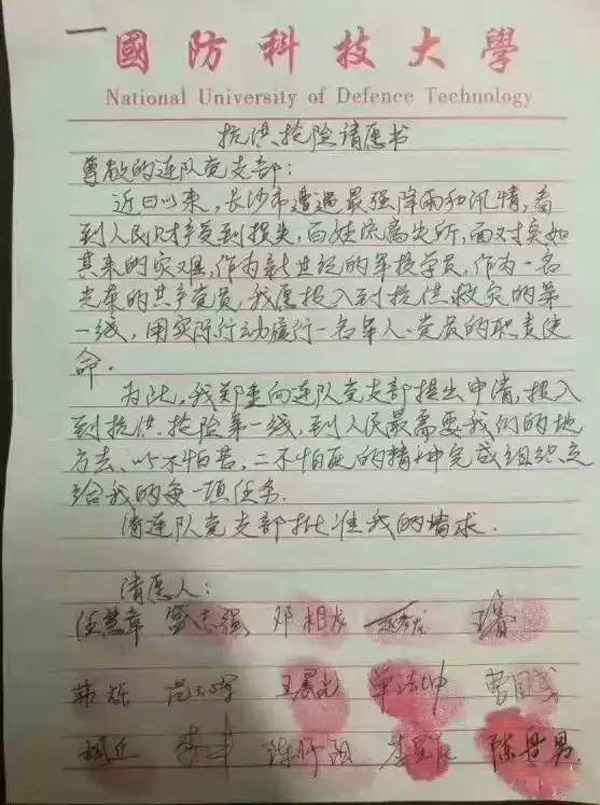 國防科技大學
National University of Defence Technology
抗洪抢险请愿书
尊敬的连队党支部：
近日以来，长沙市遭遇最强降雨和汛情，看
到人民财产受到损失，百姓流离失所，面对突如
其来的灾难，作为新世纪的军校学员，作为一名
光荣的共产党员，我愿投入到抗洪救灾的第
一线，用实际行动履行一名军人、党员的职责使
命．
为此，我郑重向连队党支部提出申请，投入
到抗洪抢险第一线，到人民最需要我们的地
方去、以一不怕苦，二不怕死的精神完成组织交
给我的每一项任务．
请连队党支部批准我的请求．
请愿人：
任慧章 志强 邓相龙 王睿
韩栋 王晨光 曹国
陈世男